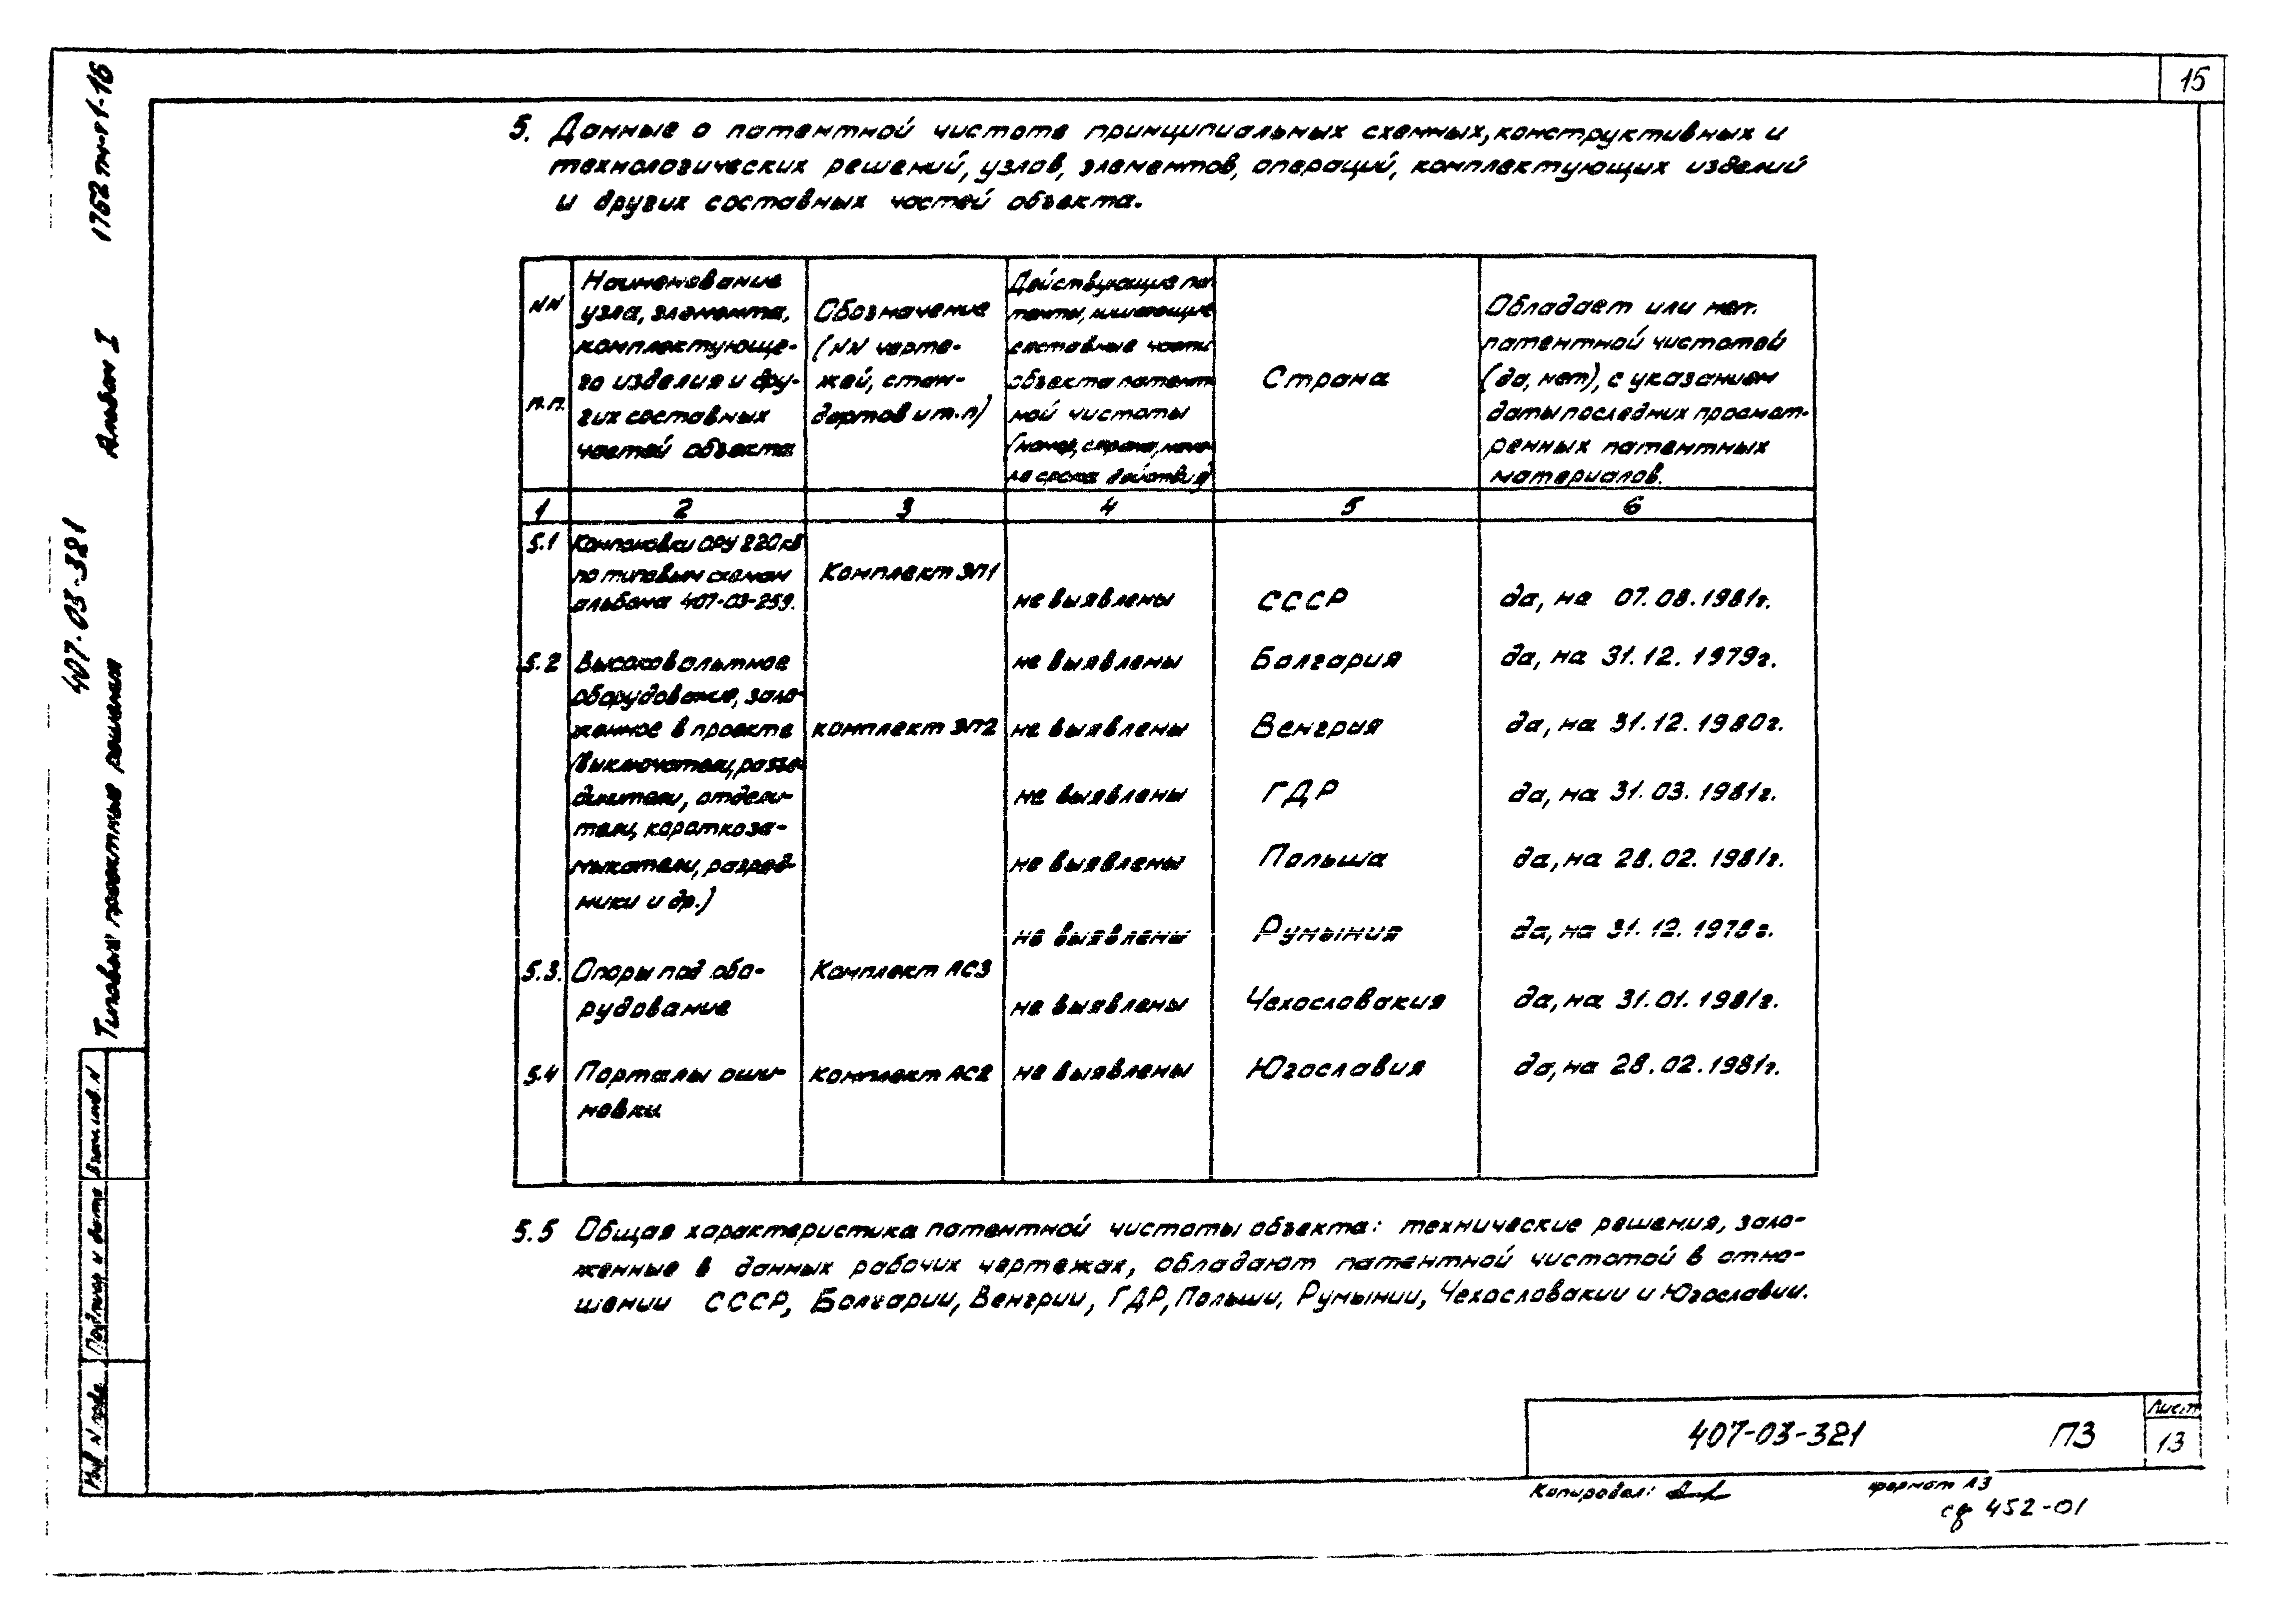 15
5. Данные о патентной чистоте принципиальных схемных, конструктивных и
технологических решений, узлов, элементов, операций, комплектующих изделий
и других составных частей объекта.
NN
п.п.
Наименование
узла, элемента,
комплектующе-
го изделия и дру-
гих составных
частей объекта
Обозначение
(NN черте-
жей, стан-
дартов и т.п)
Действующие па-
тенты, лишающие
составные части
объекта патент
ной чистоты
(номер, страна, нача-
ло срока действия)
Страна
Обладает или нет.
патентной чистотой
(да, нет), с указанием
даты последних просмот-
ренных патентных
материалов.
1 2 3 4 5 6
5.1 Компоновки ОРУ 220кВ
по типовым схемам
альбома 407-03-259.
Комплект ЭП1
не выявлены СССР да, на 07.08.1981г.
5.2 Высоковольтное
оборудование, зало-
женное в проекте
(выключатели, разъе-
динители, отдели-
тели, короткоза-
мыкатели, разряд-
ники и др.)
комплект ЭП2
не выявлены Болгария да, на 31.12.1979г.
не выявлены Венгрия да, на 31.12.1980г.
не выявлены ГДР да, на 31.03.1981г.
не выявлены Польша да, на 28.02.1981г.
не выявлены Румыния да, на 31.12.1978г.
5.3. Опоры под обо-
рудование
Комплект АС3
не выявлены Чехословакия да, на 31.01.1981г.
5.4 Порталы оши-
новки
комплект АС2
не выявлены Югославия да, на 28.02.1981г.
5.5 Общая характеристика патентной чистоты объекта: технические решения, зало-
женные в данных рабочих чертежах, обладают патентной чистотой в отно-
шении СССР, Болгарии, Венгрии, ГДР, Польши, Румынии, Чехословакии и Югославии.
407-03-321 ПЗ
Лист
13
Копировал:
формат А3
сф 452-01
1752тм-т1-16
Альбом I
407-03-321
Типовые проектные решения
Взам.инв.N
Подпись и дата
Инв N подл.